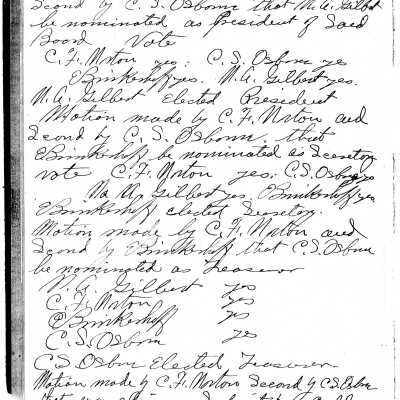 Second by C. S. Osborn that N. A. Gilbert
be nominated as President of Said
Board Vote
C. F. Norton yes: C. S. Osborn ye
E Brinkerhoff yes. N. A. Gilbert yes.
N. A. Gilbert Elected President
Motion made by C. F. Norton and
Second by C. S. Osborn. that
E Brinkerhoff be nominated as Secretory
vote C. F. Norton yes; C. S. Osborn yes
N. A. Gilbert yes, E Brinkerhoff yes
E Brinkerhoff elected Secretory.
Motion made by C, F. Norton and
Second by E Brinkerhoff that C. S. Osborn
be nominated as Treasuror
N. A. Gilbert yes
C. F. Norton yes
E Brinkerhoff yes
C. S. Osborn yes
C S Osborn Elected Treasuror
Motion made by C. F. Norton Second by C S. Osborn